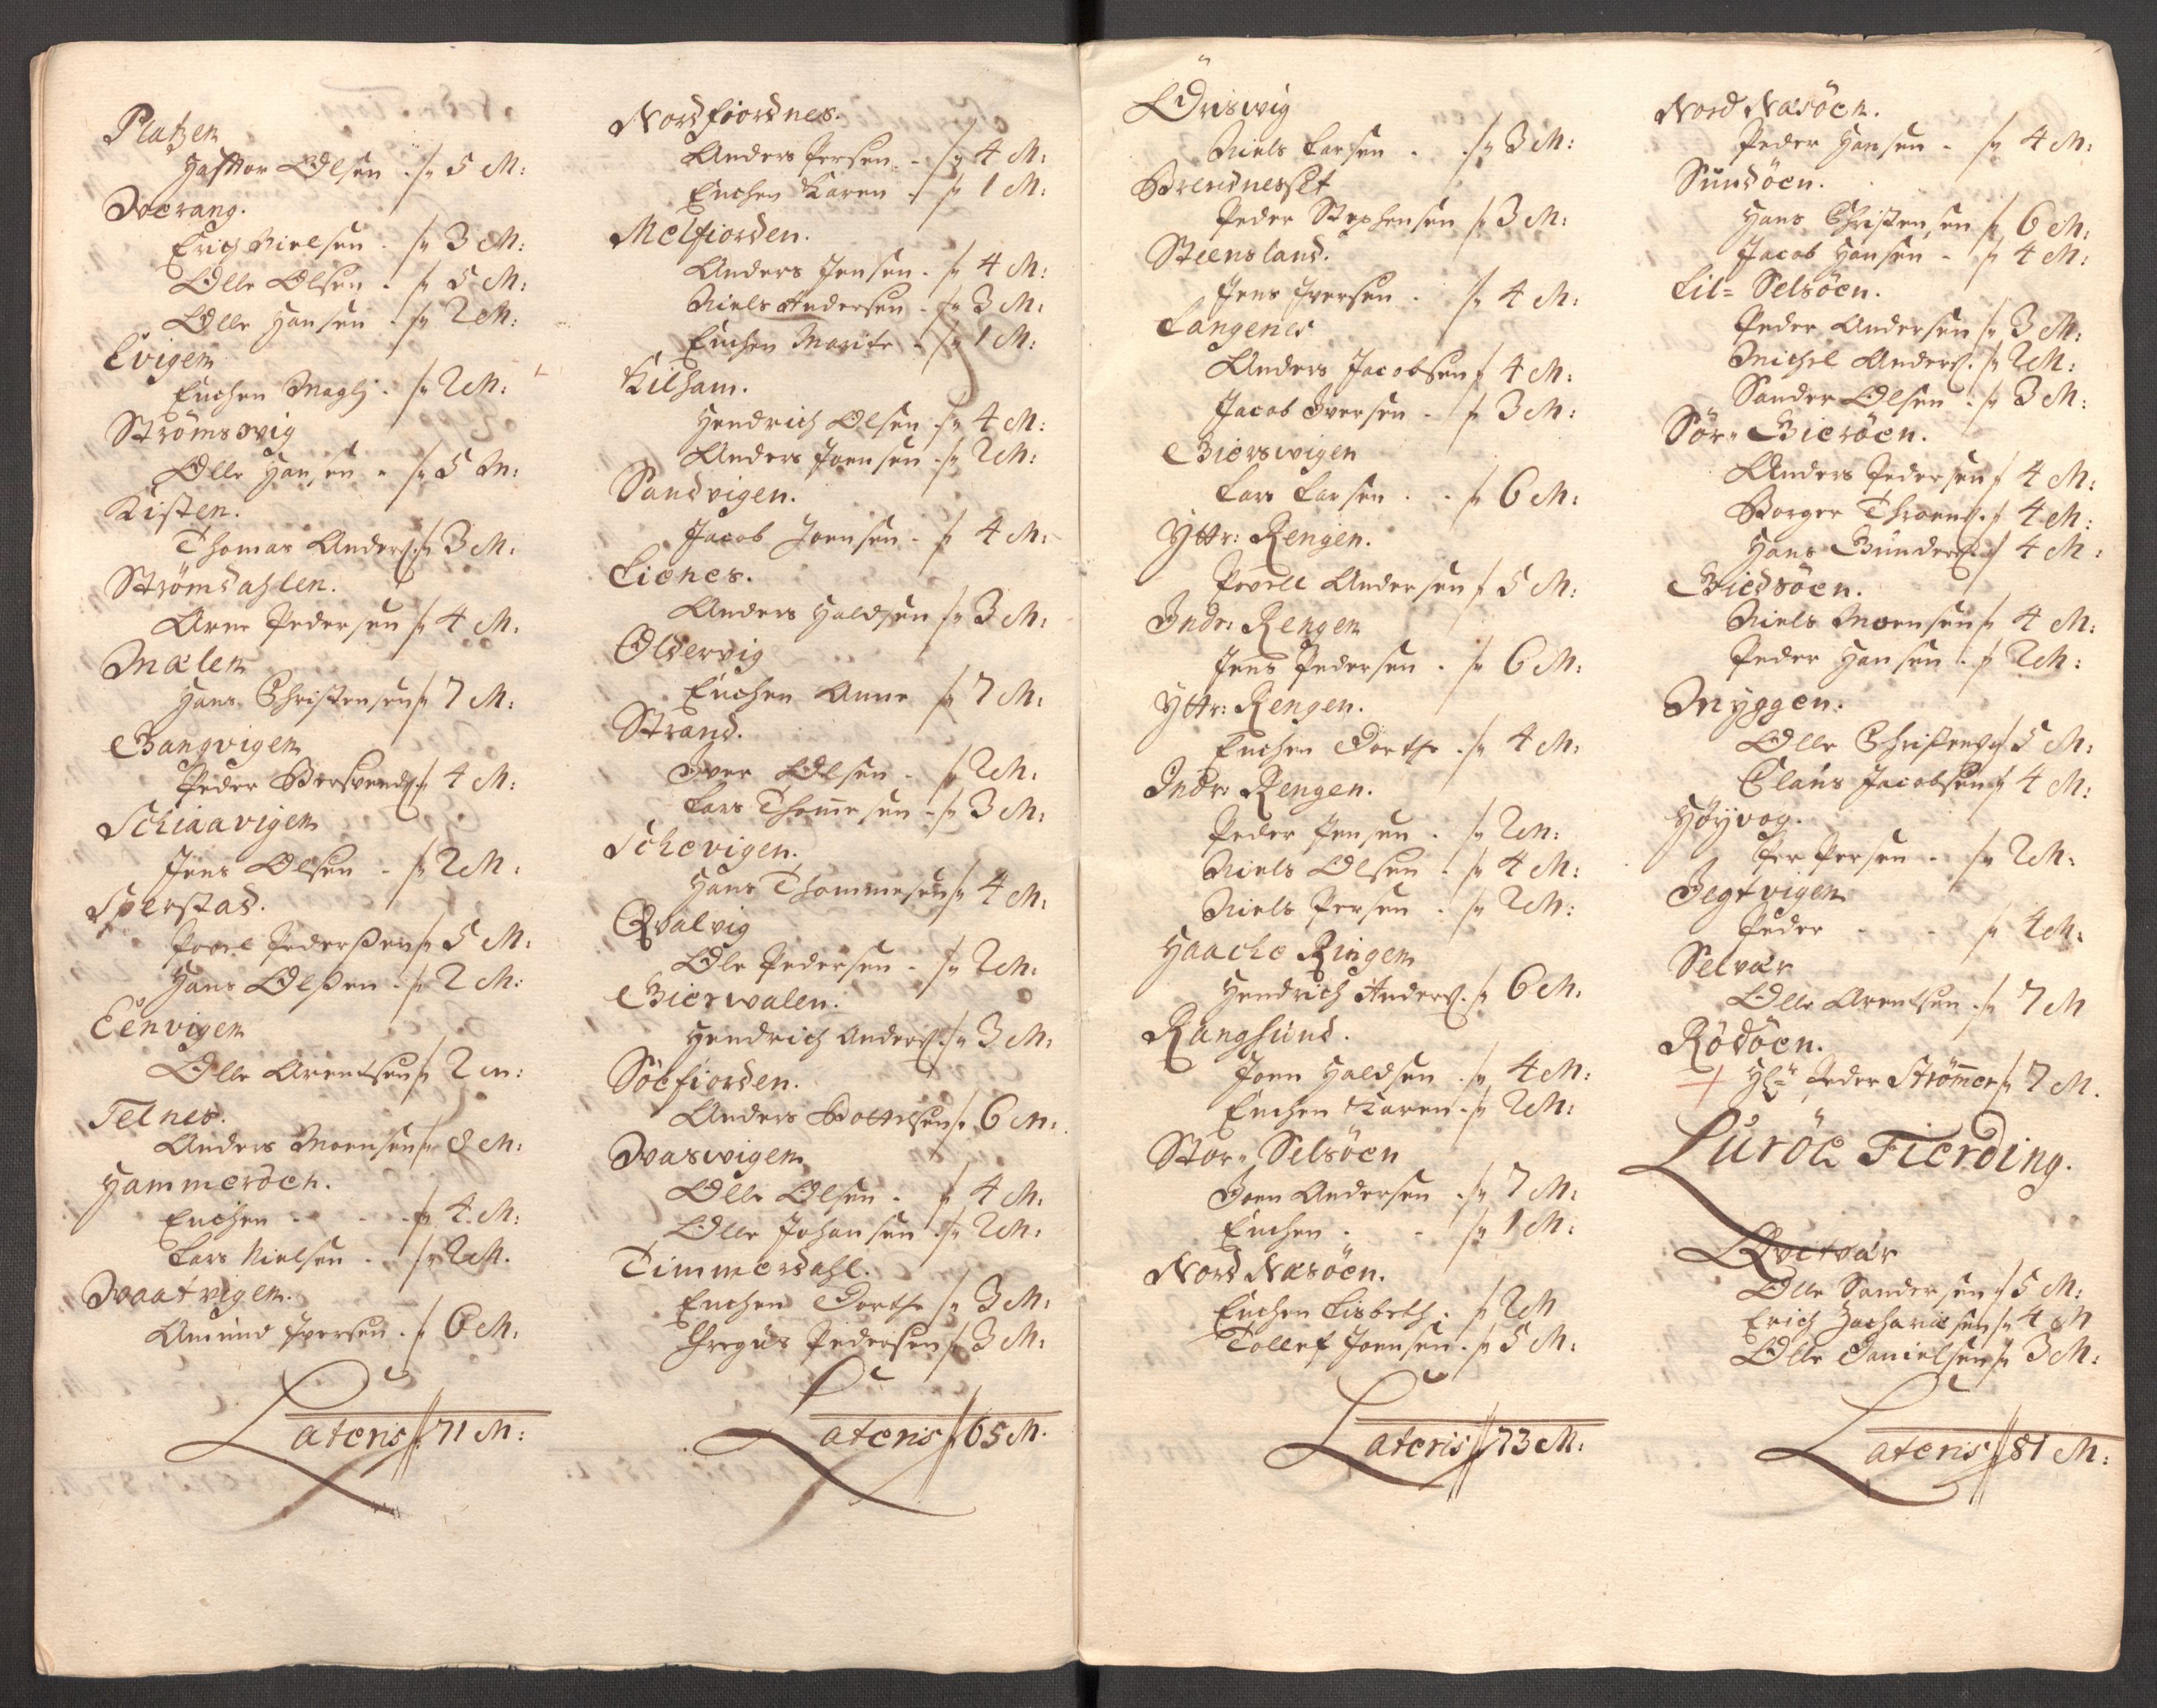 Platzen
Hafftor Olsen . /" 5 M:
Sverang.
Erich Nielsen . /" 3 M:
Olle Olsen . /" 5 M:
Olle Hansen . /" 2 M:
Evigen
Enchen Magly . /" 2 M:
Strömsvig
Olle Hansen . /" 5 M:
Kisten.
Thomas Anders: /" 3 M:
Strömdahlen.
Arne Pedersen /" 4 M:
Mælen
Hans Christensen /" 7 M:
Gangvigen
Peder Bersvends: /" 4 M:
Schiaavigen
Jens Olsen . /" 2 M:
Sperstad.
Povel Pederßen /" 5 M:
Hans Olßen . /" 2 M:
Eenvigen
Olle Arentsen /" 2 m:
Telnes.
Anders Monsen /" 8 M:
Hammeröen.
Enchen . . . /" 4 M:
Lars Nielsen . . /" 2 M.
Svaatvigen.
Amund Iversen . /" 6 M:
Lateris // 71 M:
Nordfiordnes.
Anders Persen . /" 4 M:
Enchen Karen . /" 1 M:
Melfiorden.
Anders Jensen . /" 4 M:
Niels Andersen . /" 3 M:
Enchen Marite . /" 1 M:
Kilham.
Hendrich Olsen /" 4 M:
Anders Joensen . /" 2 M:
Sandvigen.
Jacob Joensen . /" 4 M:
Lienes.
Anders Haldsen /" 3 M:
Oldervig
Enchen Anne /" 7 M:
Strand.
Iver Olsen . /" 2 M:
Lars Thommesen . /" 3 M:
Schevigen.
Hans Thommesen /" 4 M:
Qvalvig
Ole Pedersen . /" 2 M:
Gierwalen.
Hendrich Anders: /" 3 M:
Söefiorden.
Anders Bottelsen /" 6 M:
Svaswigen
Olle Olsen . /" 4 M:
Olle Johansen . /" 2 M:
Timmerdahl.
Enchen Dorthe /" 3 M:
Gregus Pedersen /" 3 M:
Lateris // 65 M.
Öriswig
Niels Larsen . . /" 3 M:
Brendnesset
Peder Stephensen /" 3 M:
Steensland.
Jens Iversen . /" 4 M:
Langenes
Anders Jacobsen /" 4 M:
Jacob Iversen . /" 3 M:
Gierswigen
Lars Larsen . . /" 6 M:
Yttr: Rengen.
Povell Andersen /" 5 M:
Indr: Rengen
Jens Pedersen . /" 6 M:
Yttr: Rengen.
Enchen Dorthe . /" 4 M:
Indr: Rengen.
Peder Jensen . /" 2 M:
Niels Olsen . /" 4 M:
Niels Persen . /" 2 M:
Haache Ringen
Hendrich Anders: /" 6 M:
Rangsund.
Joen Haldsen . /" 4 M:
Enchen Karen . /" 2 M:
Stor" Selsöen
Joen Andersen . /" 7 M:
Enchen . . /" 1 M:
Nord Næsöen.
Enchen Lisbeth . /" 2 M
Tollef Joensen . /" 5 M:
Lateris // 73 M:
Nord Næsöen.
Peder Hansen . /" 4 M:
Sundöen.
Hans Christensen /" 6 M:
Jacob Hansen . /" 4 M:
Lil= Selsöen.
Peder Andersen /" 3 M:
Michel Anders: /" 2 M:
Sander Olsen . /" 3 M:
Sör" Gieröen.
Anders Pedersen /" 4 M:
Borger Throens: /" 4 M:
Hans Gunders: /" 4 M:
Giedsöen.
Niels Monsen /" 4 M:
Peder Hansen . /" 2 M:
Myggen.
Olle Christens: /" 5 M:
Claus Jacobsen /" 4 M:
Höyvog.
Per Persen . /" 2 M:
Jegtvigen
Peder . . /" 4 M:
Selvær
Olle Arentsen . /" 7 M
Rödöen.
Hr Peder Strömmer /" 7 M.
Luröe Fierding.
Qvitvær
Olle Sandersen /" 5 M:
Erich Zachariæsen /" 4 M
Olle Danielsen /" 3 M:
Lateris // 81 M: